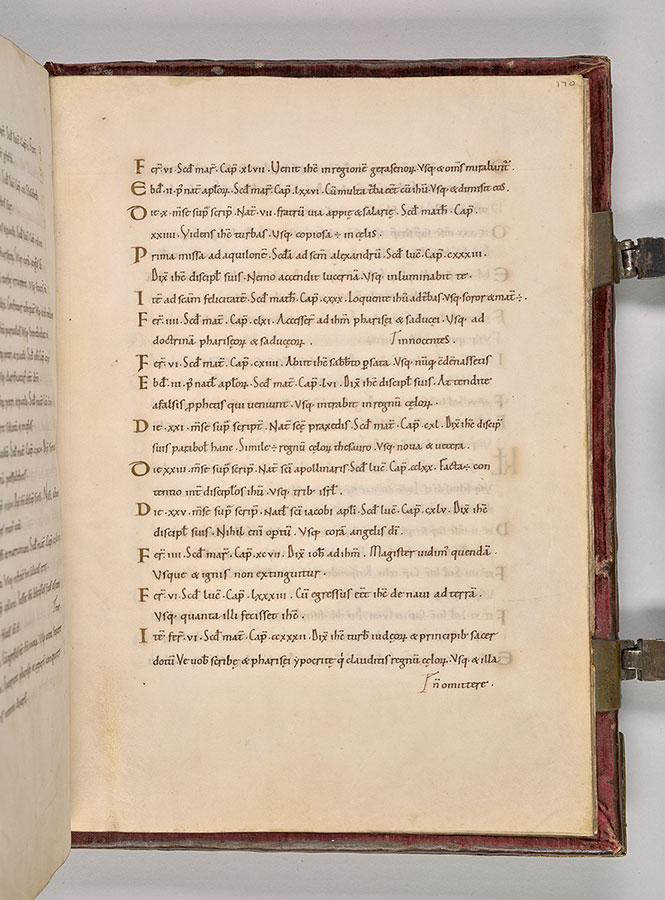 170
Fer̄ vi · Scd̄ mar̄ · Cap̄ xlvii · Venit ih̄c in regionē gerasenoꝝ · Vsq; & om̄s mirabant̄ ·
Ebd̄ · ii · p̄ nat̄ ap̄loꝝ · Scd̄ mar̄ · Cap̄ · lxxvi · Cū multa t̄ba eēt cū ih̄u · Vsq; & dimisit eos ·
Die · x · m̄se sup̄ scrip̄ · Nat̄ · vii · fratrū via appię & salarię · Scd̄ math̄ · Cap̄ ·
xxiiii · Videns ih̄c turbas · Vsq; copiosa ÷ in cęlis ·
Prima missa ad aquilonē · Sc̄da ad sc̄m alexandrū · Scd̄ luc̄ · Cap̄ · cxxxiii ·
Dix̄ ih̄c discipl̄ suis · Nemo accendit lucernā · Vsq; inluminabit te ·
Itē ad sc̄am felicitatē · Scd̄ math̄ · Cap̄ · cxxx · Loquente ih̄u ad t̄bas · Vsq; soror & mat̄ ÷ ·
Fer̄ · iiii · Scd̄ mat̄ · Cap̄ · clxi · Accesser̄ ad ih̄m pharisei & saducei · Vsq; ad
doctrinā phariseoꝝ & saduceoꝝ · innocentes ·
Fer̄ · vi · Scd̄ mat̄ · Cap̄ · cxiiii · Abiit ih̄c sabb̄to p̄ sata · Vsq; nūq̄ c̄dēnassetis
Ebd̄ · iii · p̄ nat̄l ap̄loꝝ · Scd̄ mat̄ · Cap̄ · lvi · Dix̄ ih̄c discipl̄ suis · Attendite
a falsis p̄phetis qui veniunt · Vsq; intrabit in regnū cęloꝝ ·
Die · xxi · m̄se sup̄ script̄ · Nat̄ · scę̄ praxedis · Scd̄ mat̄ · Cap̄ · cxl · Dix̄ ih̄c discip̄
suis parabol̄ hanc · Simile ÷ regnū cęloꝝ thesauro · Vsq; nova & vetera ·
Die xxiii · m̄se sup̄ scrip̄ · Nat̄ sc̄i apollinaris · Scd̄ luc̄ · Cap̄ · cclxx · Facta ÷ con
tentio int̄ discip̄los ih̄u · Vsq; trib̄ isr̄l ·
Die · xxv · m̄se sup̄ scrip̄ · Nat̄l sc̄i iacobi apl̄i · Scd̄ luc̄ · Cap̄ · cxlv · Dix̄ ih̄c
discipl̄ suis · Nihil eni optū · Vsq; corā angelis dī ·
Fer̄ · iiii · Scd̄ mar̄ · Cap̄ · xcvii · Dix̄ ioh̄ ad ih̄m · Magister vidim̄ quendā ·
Vsque & ignis non extinguitur ·
Fer̄ · vi · Scd̄ luc̄ · Cap̄ · lxxxiii · Cū egressus eēt ih̄c de navi ad terrā ·
Vsq; quanta illi fecisset ih̄c ·
Itē · fer̄ · vi · Scd̄ mat̄ · Cap̄ · ccxxxii · Dix̄ ih̄c turb̄ iudęoꝝ & principib̄ sacer
dotū Ve vob̄ scribę & pharisęi ypocritę q̄ clauditis regnū cęloꝝ · Vsq; & illa
n̄ omittere ·